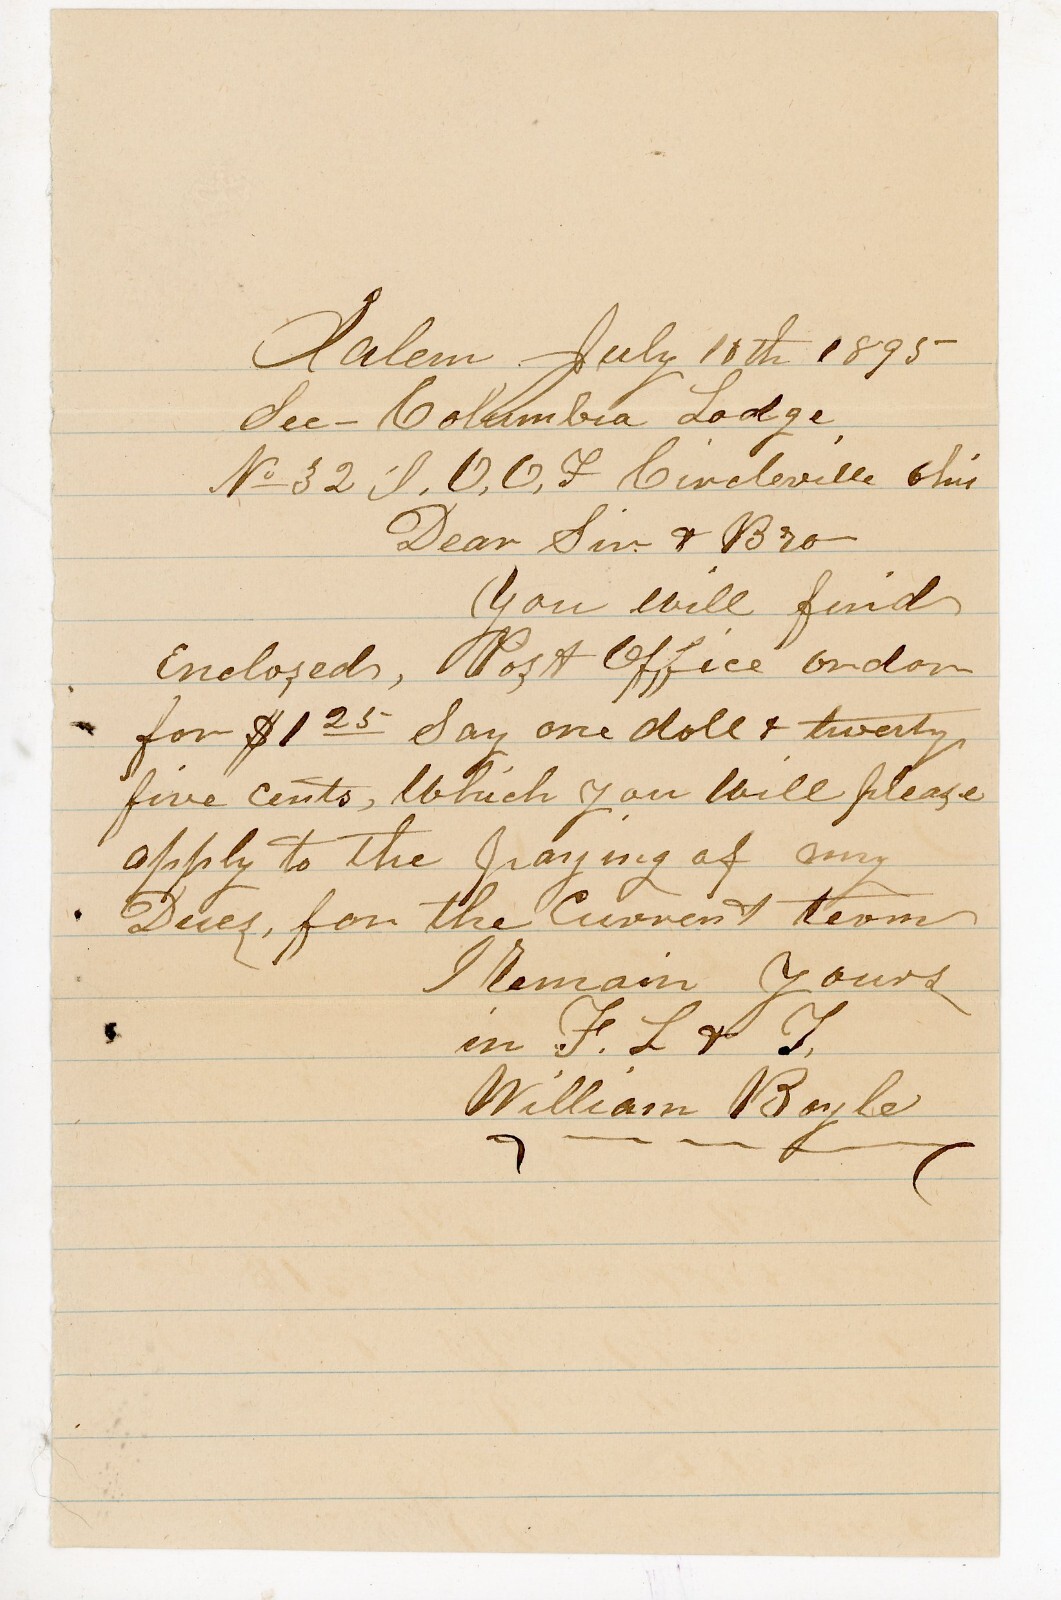 Salem July 10th 1895
Sec - Columbia Lodge
No 32 I. O, O, F Circleville Ohio
Dear Sir & Bro
You will find
Enclosed, Post Office order
for $1 25 Say one doll & twenty
five cents, Which you will please
apply to the paying of my
Dues, for the Current term
I Remain Yours
in F. L & T,
William Boyle